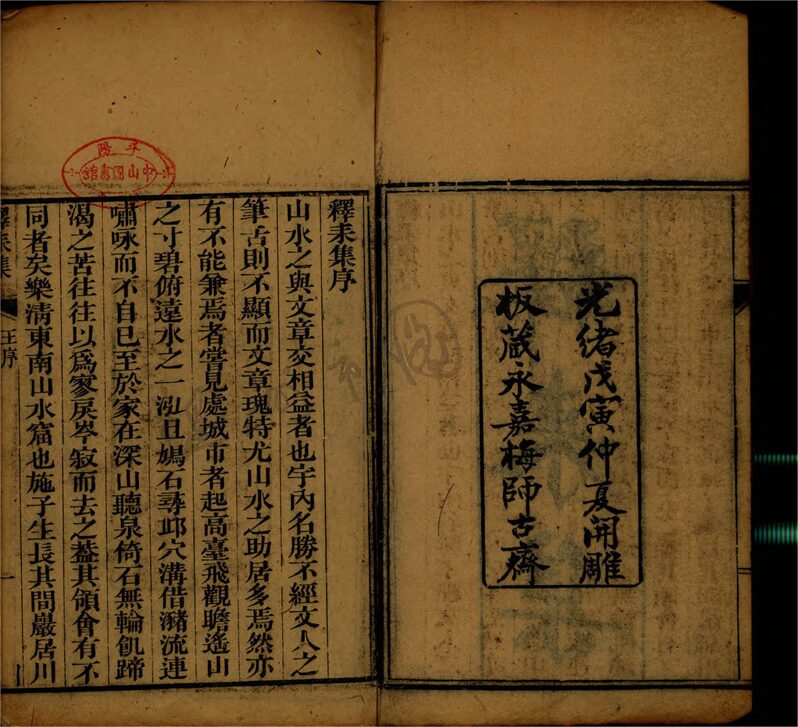 光緒戊寅仲夏開雕
板藏永嘉梅師古齋
釋耒集序
山水之與文章交相益者也宇內名勝不經文人之
筆舌則不顯而文章瑰特尤山水之助居多焉然亦
有不能兼焉者嘗見處城市者起高臺飛觀瞻遙山
之寸碧俯遠水之一泓且嫣石尋邱穴溝借瀦流連
嘯咏而不自已至於家在深山聽泉倚石無輪飢蹄
渴之苦往往以爲寥戾岑寂而去之葢其領會有不
同者矣樂淸東南山水窟也施子生長其間巖居川
釋耒集
王序
一
中山圖書館